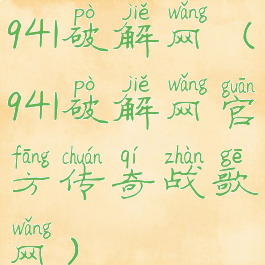 pò jiě wǎng
941破解网（
pò jiě wǎng guān
941破解网官
fāng chuán qí zhàn gē
方传奇战歌
wǎng
网）